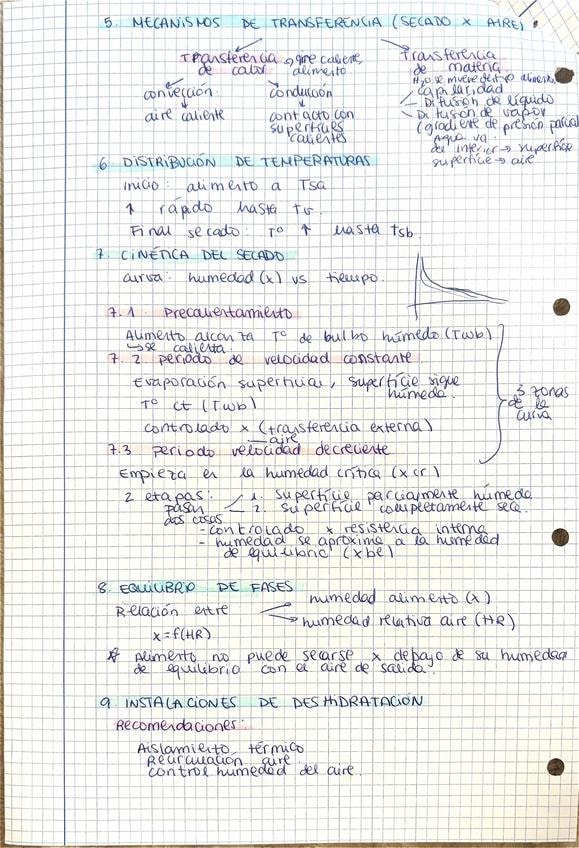 5. MECANISMOS DE TRANSFERENCIA (SECADO X AIRE)
Transferencia de calor → que caliente alimento
convección:
aire caliente
conducción
contacto con
superficies
calientes
Transferencia
de materia
H2O se mueve dentro alimento
- capilaridad
- Difusión de líquido
- Difusión de vapor
(gradiente de presión parcial
agua va
del interior → superficie
superficie → aire
6. DISTRIBUCIÓN DE TEMPERATURAS
Inicio: alimento a Tsa
↑ rápido hasta
Final secado: Tº ↑ hasta Tsb.
7. CINÉTICA DEL SECADO
curva: humedad (x) vs tiempo.
7.1. Precalentamiento
Alimento alcanza Tº de bulbo húmedo (Twb)
↳ se calienta
7.2 periodo de velocidad constante
Evaporación superficial, superficie sigue
húmeda.
Tº ct (Twb)
controlado x (transferencia externa)
aire
3 zonas
de la
curva
7.3 periodo velocidad decreciente
Empieza en la humedad crítica (xcr)
2 etapas: 1. superficie parcialmente húmeda
2. superficie completamente seca.
pasan
dos cosas
- controlado x resistencia interna
- humedad se aproxima a la humedad
de equilibrio (xbe)
8. EQUILIBRIO DE FASES
Relación entre
humedad alimento (x)
humedad relativa aire (HR)
x = f(HR)
* Alimento no puede secarse x debajo de su humedad
de equilibrio con el aire de salida.
9. INSTALACIONES DE DESHIDRATACIÓN
Recomendaciones:
Aislamiento térmico
Recirculación aire
control humedad del aire.